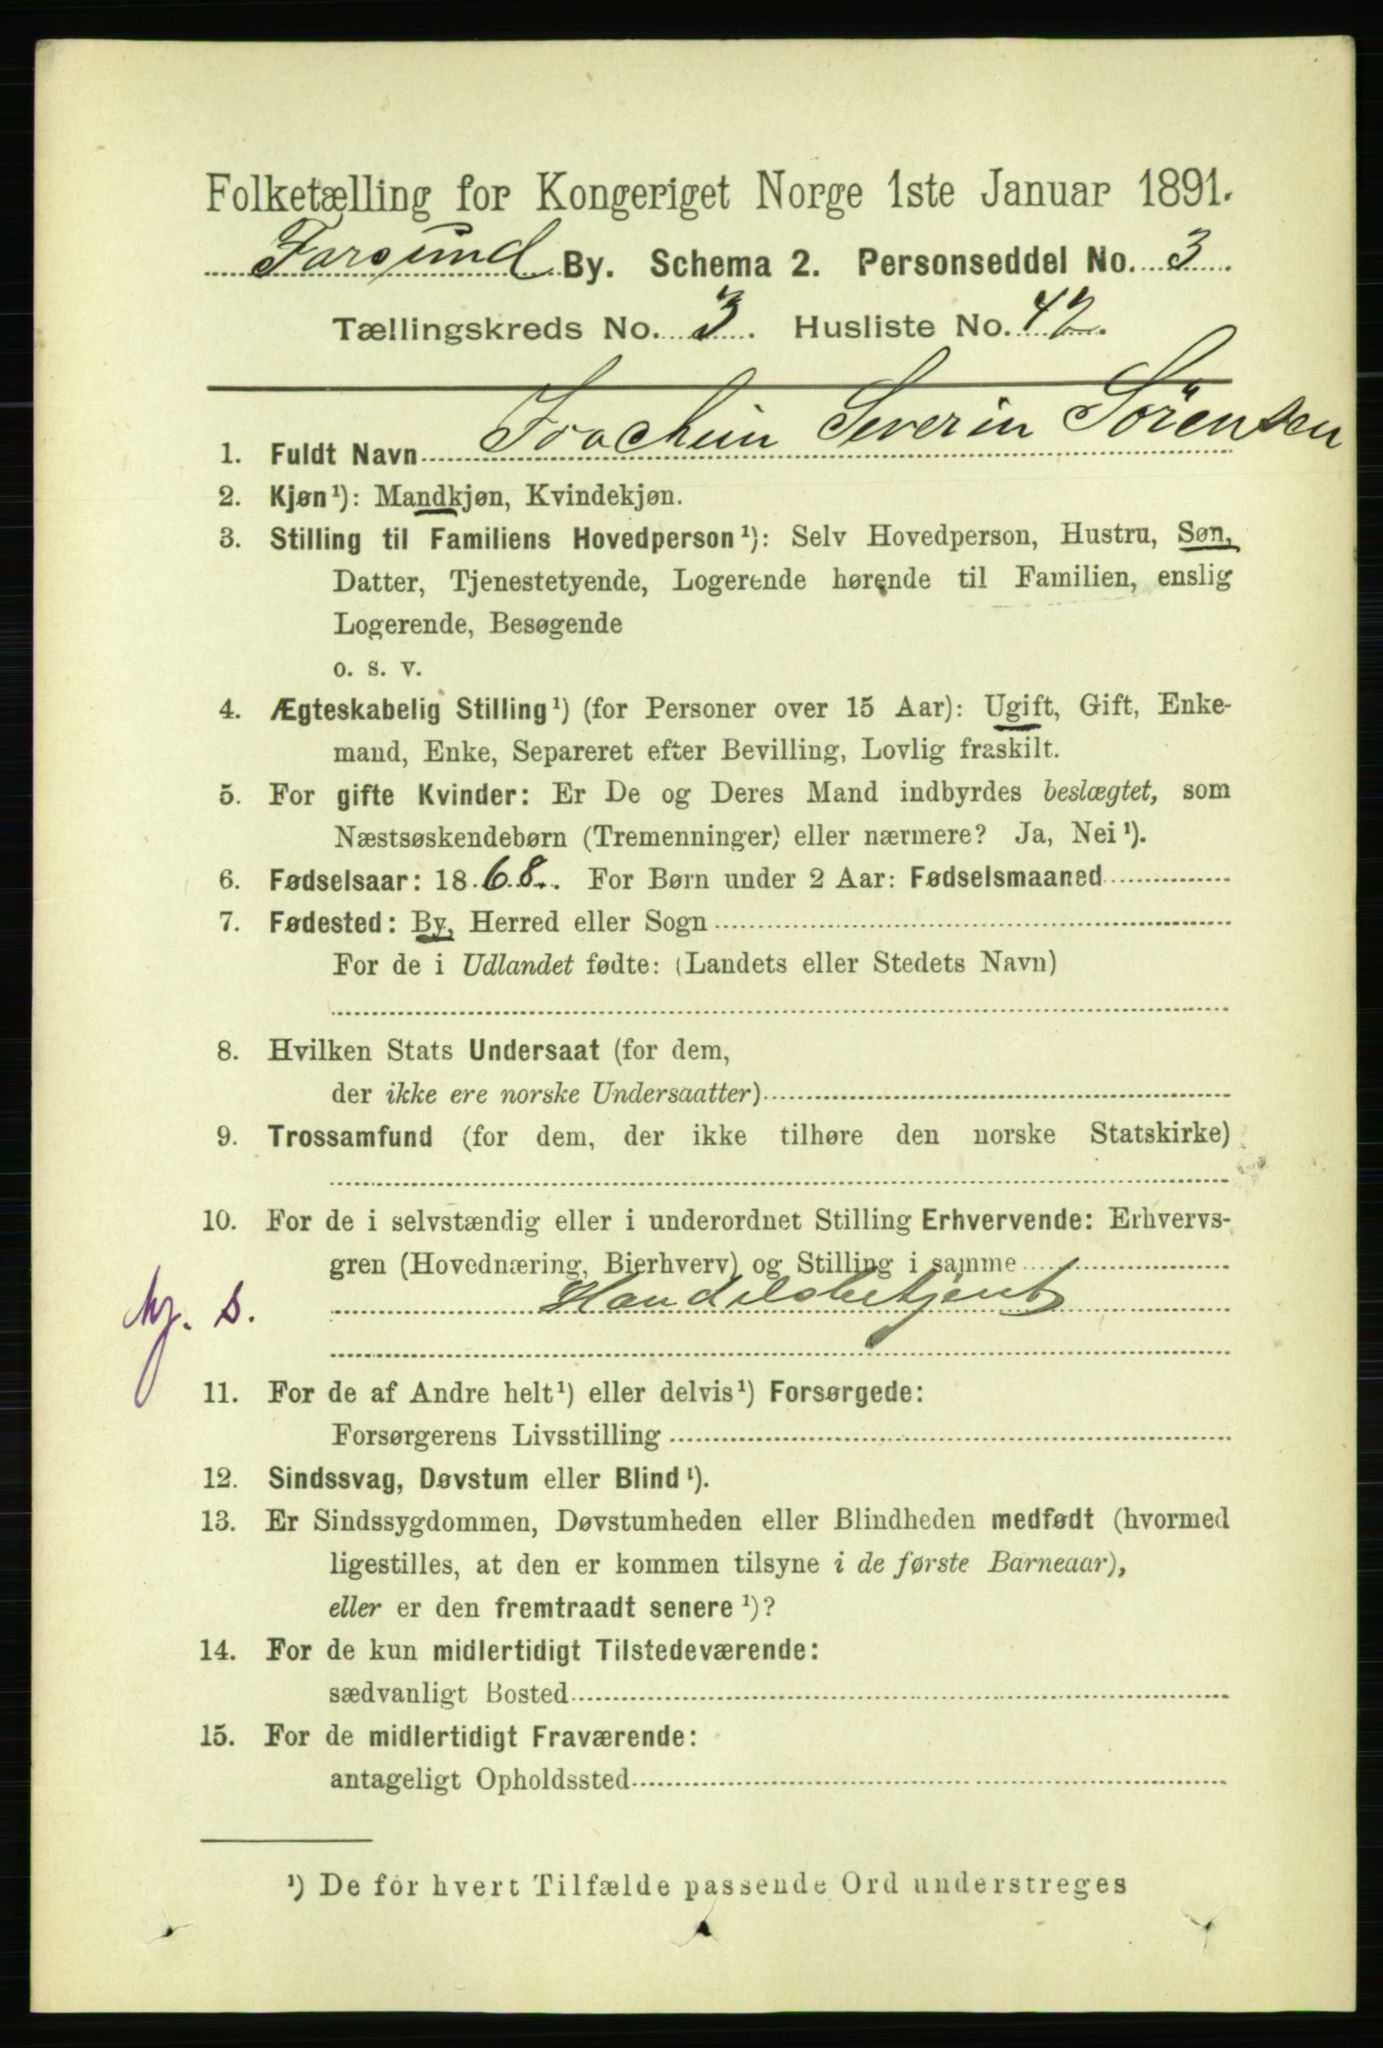 Folketælling for Kongeriget Norge 1ste Januar 1891.
Farsund By. Schema 2. Personseddel No. 3.
Tællingskreds No. 3. Husliste No. 42.
1. Fuldt Navn Joachim Severin Sörensen
2. Kjøn¹): Mandkjøn, Kvindekjøn.
3. Stilling til Familiens Hovedperson¹): Selv Hovedperson, Hustru, Søn,
Datter, Tjenestetyende, Logerende hørende til Familien, enslig
Logerende, Besøgende
o. s. v.
4. Ægteskabelig Stilling¹) (for Personer over 15 Aar): Ugift, Gift, Enke-
mand, Enke, Separeret efter Bevilling, Lovlig fraskilt.
5. For gifte Kvinder: Er De og Deres Mand indbyrdes beslægtet, som
Næstsøskendebørn (Tremenninger) eller nærmere? Ja, Nei¹).
6. Fødselsaar: 1868. For Børn under 2 Aar: Fødselsmaaned
7. Fødested: By, Herred eller Sogn
For de i Udlandet fødte: (Landets eller Stedets Navn)
8. Hvilken Stats Undersaat (for dem,
der ikke ere norske Undersaatter)
9. Trossamfund (for dem, der ikke tilhøre den norske Statskirke)
10. For de i selvstændig eller i underordnet Stilling Erhvervende: Erhvervs-
gren (Hovednæring, Bierhverv) og Stilling i samme
Handelsbetjent
11. For de af Andre helt¹) eller delvis¹) Forsørgede:
Forsørgerens Livsstilling
12. Sindssvag, Døvstum eller Blind¹).
13. Er Sindssygdommen, Døvstumheden eller Blindheden medfødt (hvormed
ligestilles, at den er kommen tilsyne i de første Barneaar),
eller er den fremtraadt senere¹)?
14. For de kun midlertidigt Tilstedeværende:
sædvanligt Bosted
15. For de midlertidigt Fraværende:
antageligt Opholdssted
¹) De for hvert Tilfælde passende Ord understreges